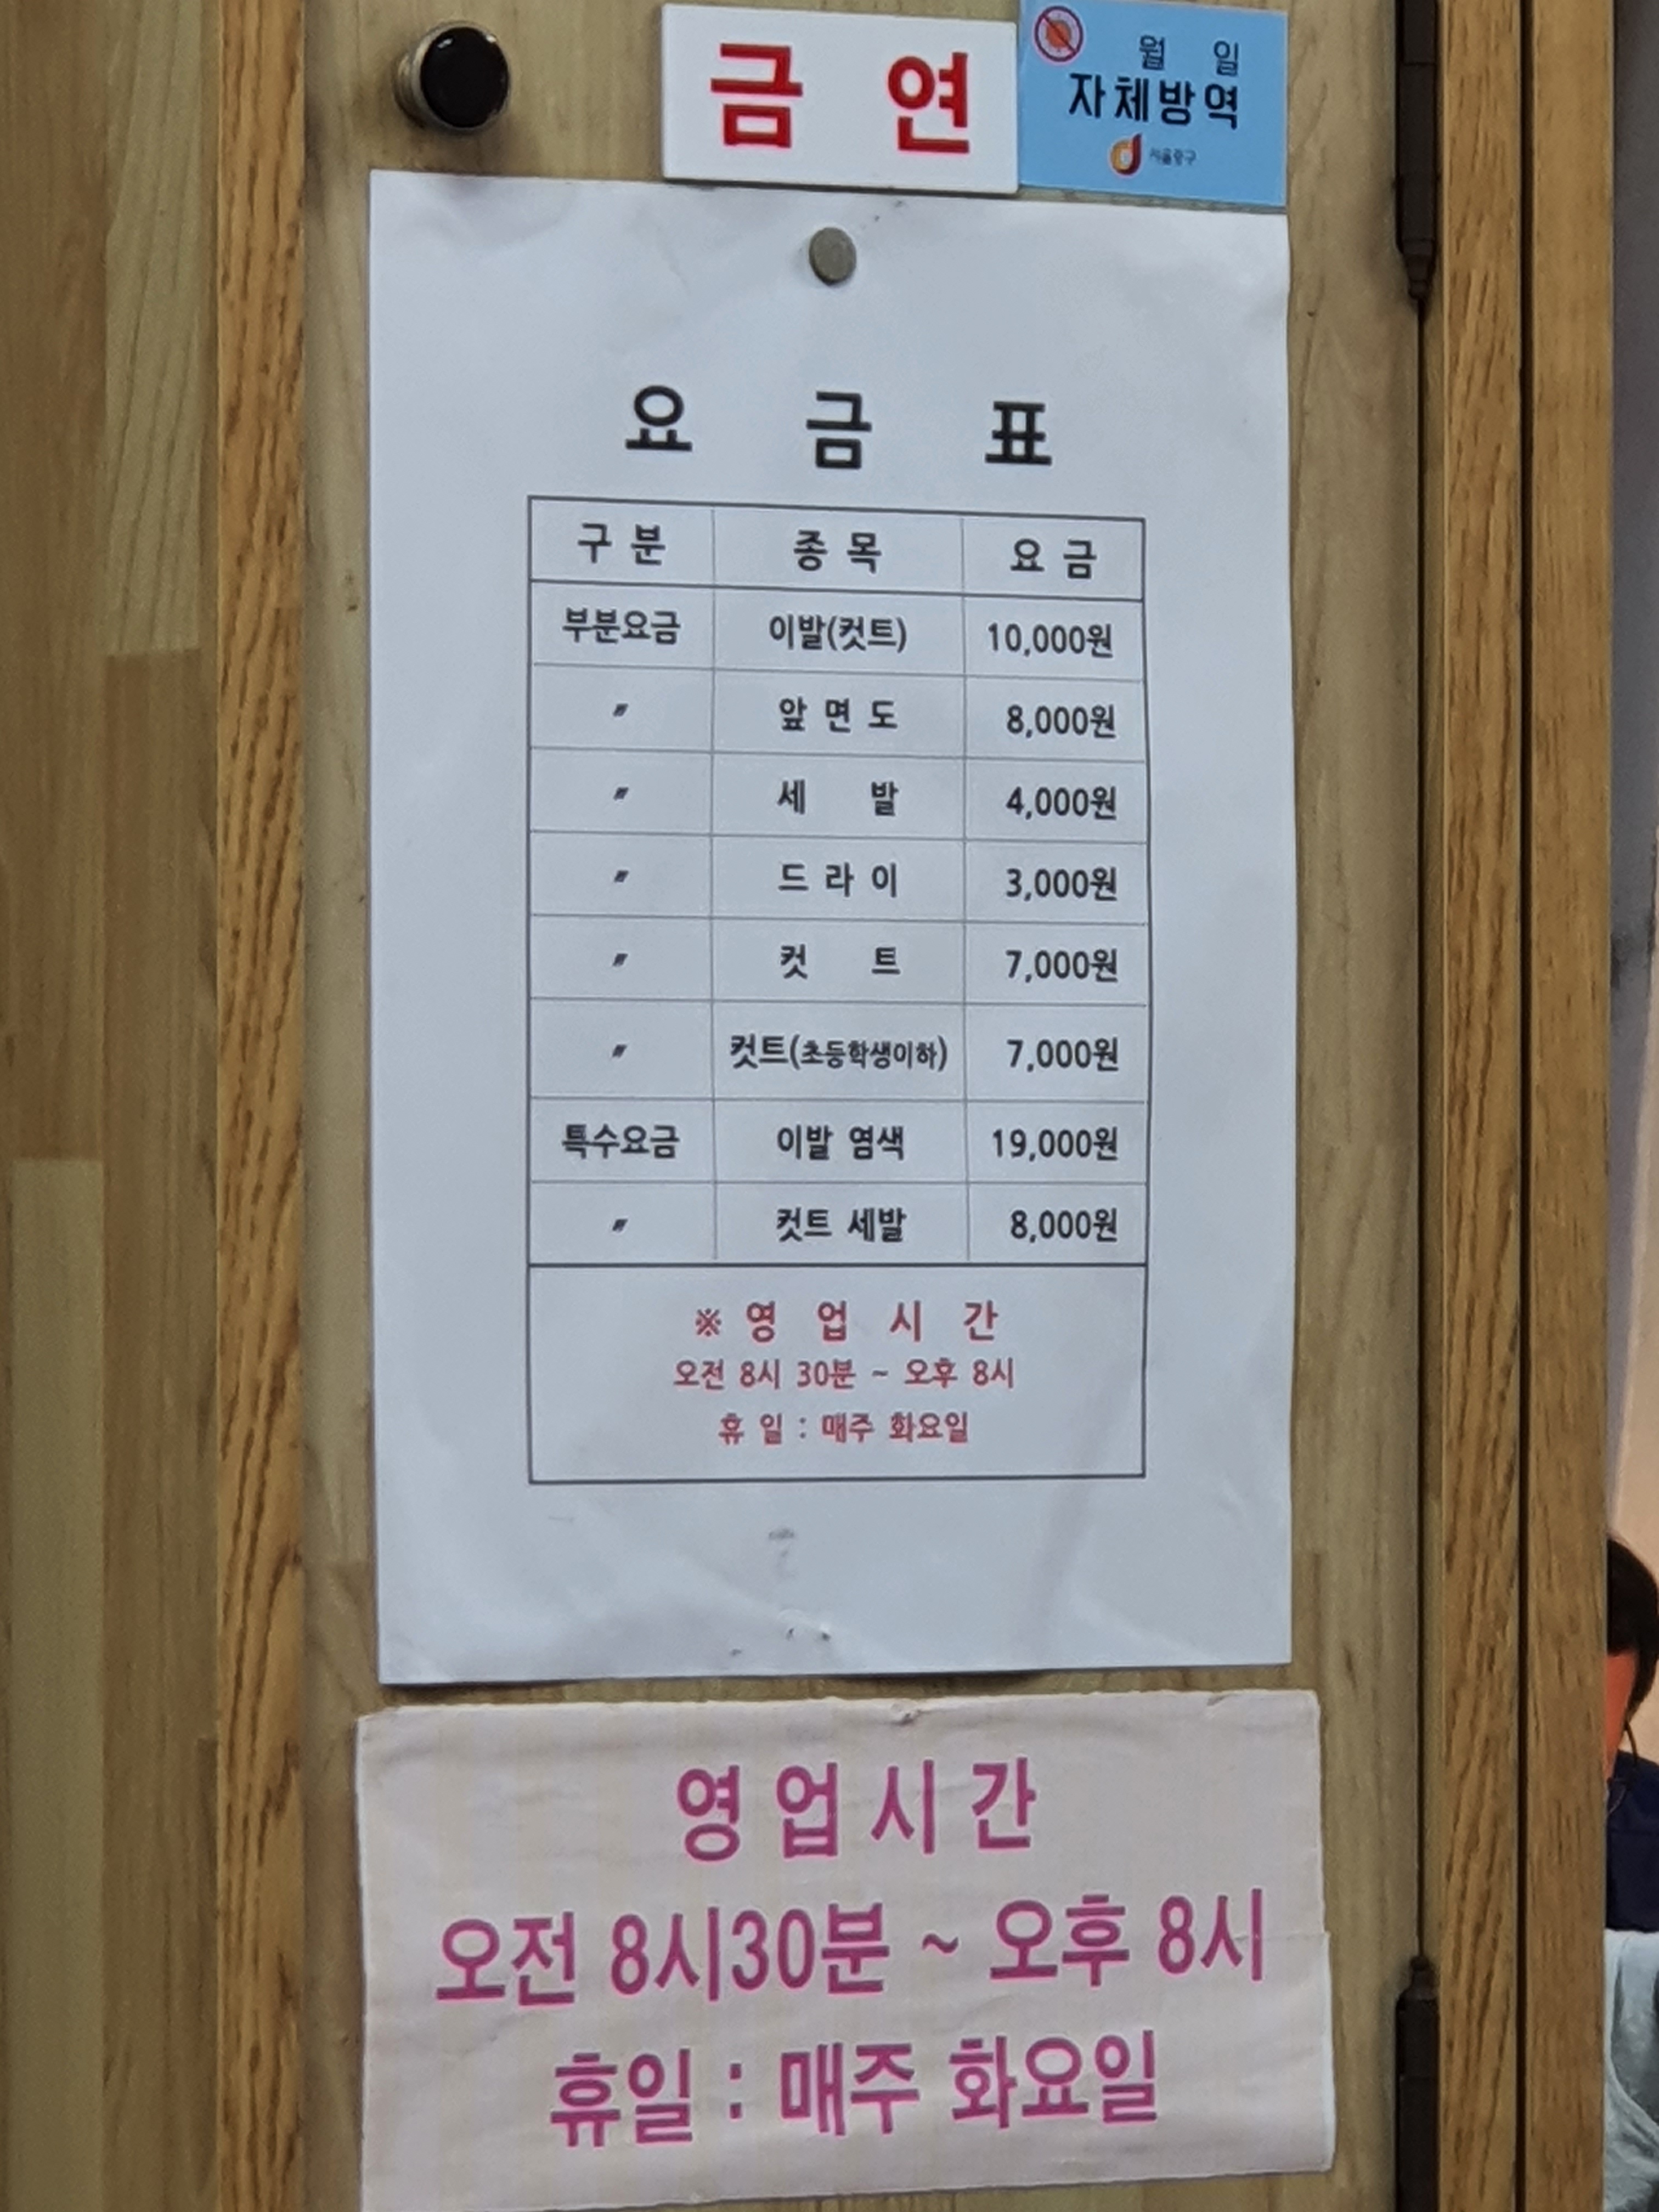 금 연
월 일
자체방역
서울중구
요 금 표
구 분 종 목 요 금
부분요금 이발(컷트) 10,000원
〃 앞 면 도 8,000원
〃 세 발 4,000원
〃 드 라 이 3,000원
〃 컷 트 7,000원
〃 컷트(초등학생이하) 7,000원
특수요금 이발 염색 19,000원
〃 컷트 세발 8,000원
※ 영 업 시 간
오전 8시 30분 ~ 오후 8시
휴 일 : 매주 화요일
영업시간
오전 8시30분 ~ 오후 8시
휴일 : 매주 화요일